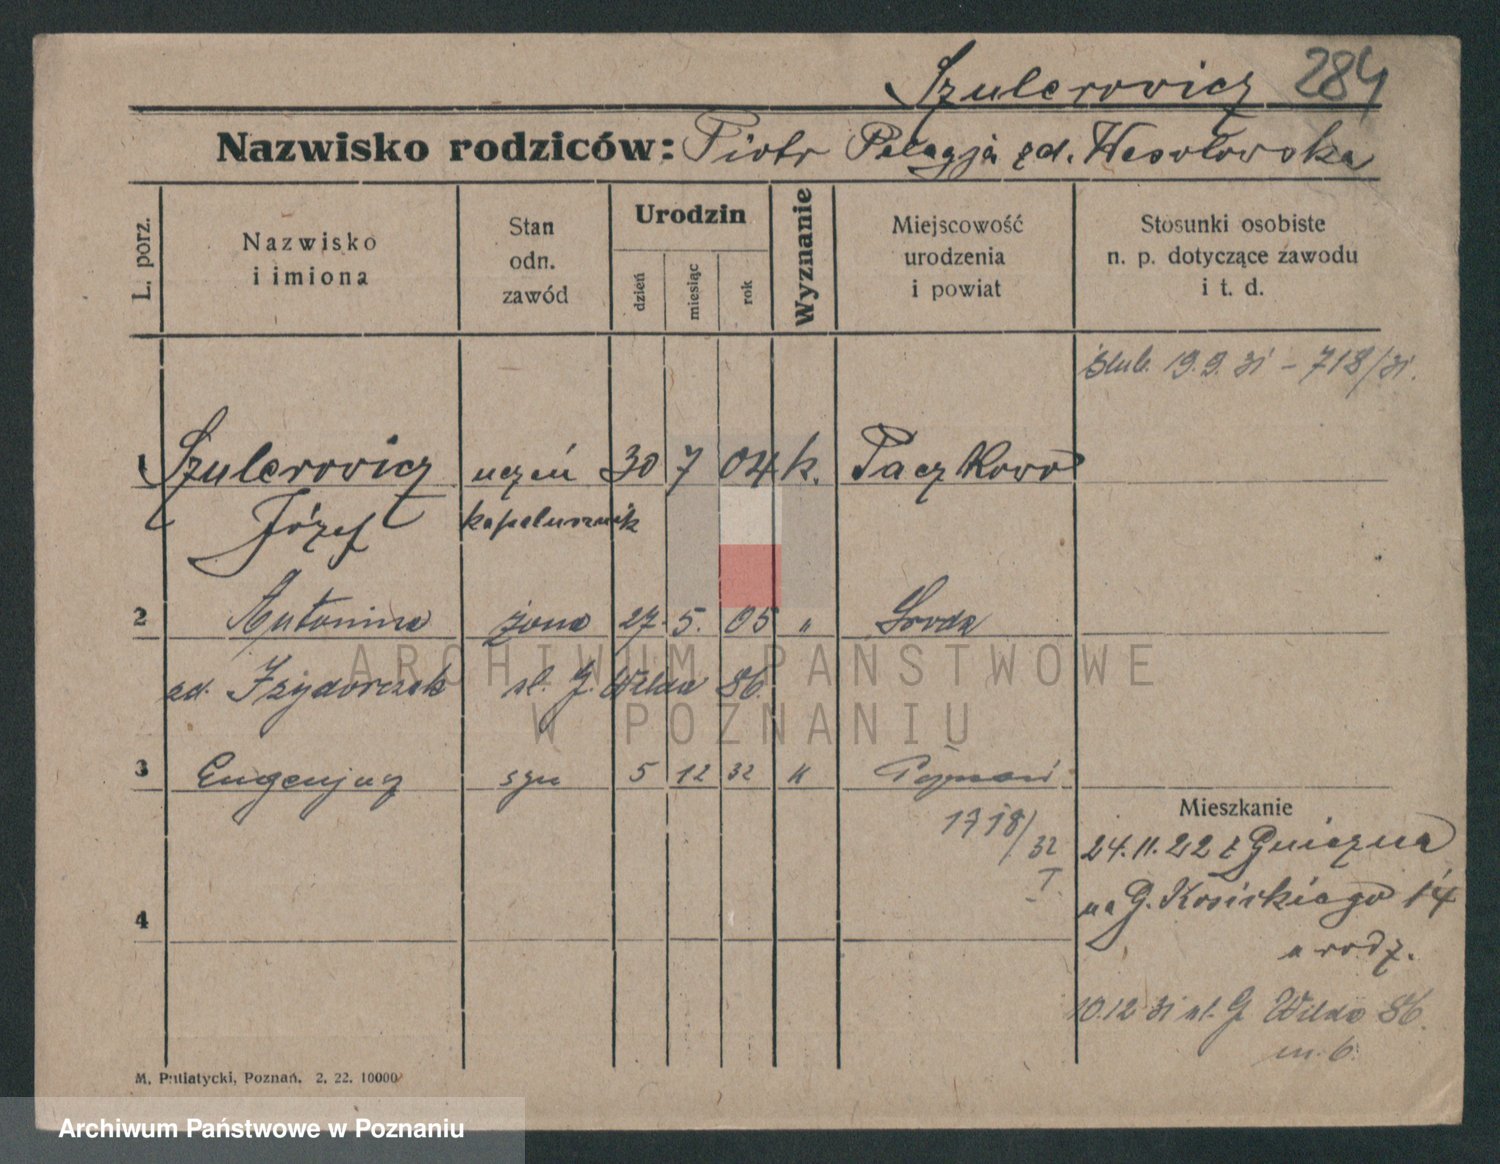 Szulcrowicz 284
Nazwisko rodziców: Piotr Pelagja zd. Wesołowska
L. porz.
Nazwisko
i imiona
Stan
odn.
zawód
Urodzin
dzień
miesiąc
rok
Wyznanie
Miejscowość
urodzenia
i powiat
Stosunki osobiste
n. p. dotyczące zawodu
i t. d.
ślub. 19.9.31 – 718/31.
1 Szulcrowicz uczeń 30 7 04 k. Paczkowo
Józef kapelusznik
2 Antonina żona 27. 5. 05 „ Środa
zd. Izydorczak ul. G. Wilda 86.
3 Eugenjusz syn 5 12 32 „ Poznań
1718/32
I.
Mieszkanie
24.11.22 z Gniezna
na G. Kosińskiego 14
u rodz.
4
10.12 31 ul. G. Wilda 86.
m. 6.
M. Putiatycki, Poznań. 2, 22. 10000
ARCHIWUM PAŃSTWOWE
W POZNANIU
Archiwum Państwowe w Poznaniu